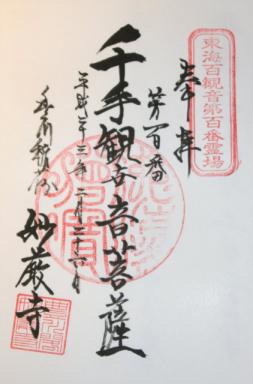 東海百観音第百番霊場
奉拝
第百番
千手観世音菩薩
平成二十三年二月二十六日
豊川稲荷
妙厳寺